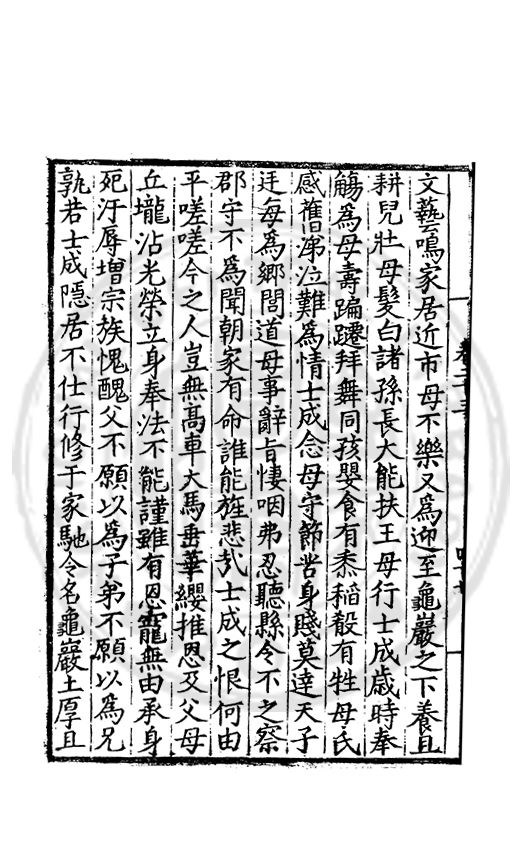 文藝鳴家居近市母不樂又為迎至龜巖之下養且
耕兒壯母髮白諸孫長大能扶王母行士成歲時奉
觴為母壽蹁蹮拜舞同孩嬰食有黍稻殽有牲母氏
感舊涕泣難為情士成念母守節苦身賤莫達天子
廷每為鄉閭道母事辭旨悽咽弗忍聽縣令不之察
郡守不為聞朝家有命誰能旌悲哉士成之恨何由
平嗟嗟今之人豈無高車大馬垂華纓推恩及父母
丘壠沾光榮立身奉法不能謹雖有恩寵無由承身
死汙辱增宗族愧醜父不願以為子弟不願以為兄
孰若士成隱居不仕行修于家馳令名龜巖土厚且
卷二十三